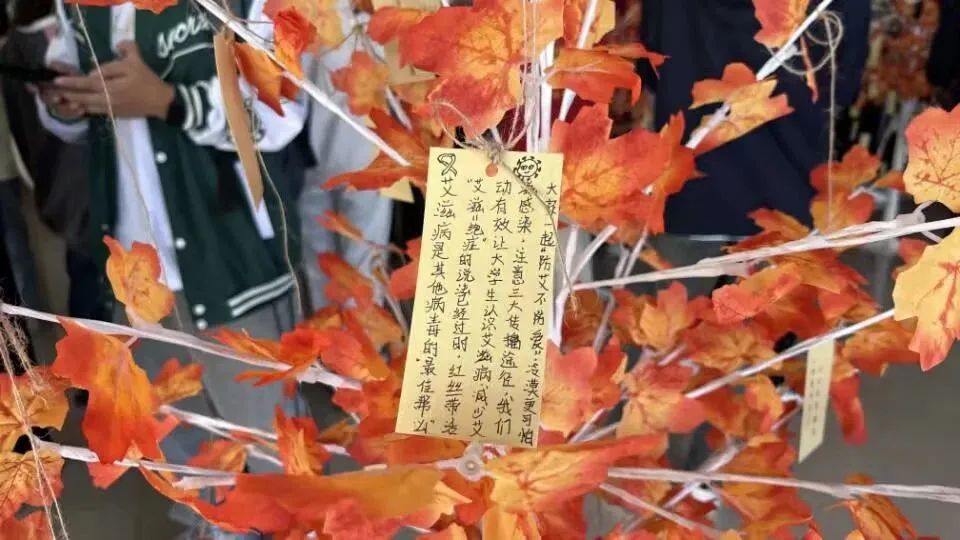 艾滋病是其他病毒的“最佳帮凶”
“艾滋=绝症”的说法已经过时,红丝带活
动有效让大学生认识艾滋病,减少艾
感染,注意三大传播途径,我们
大家一起“防艾不防爱”,冷漠更可怕